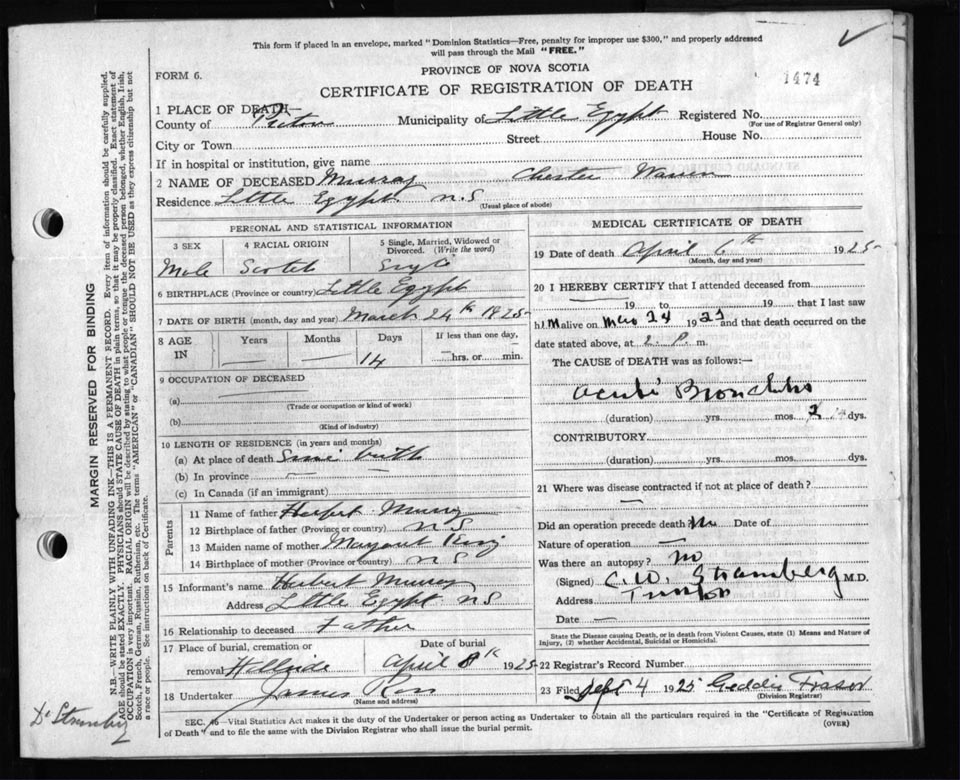 This form if placed in an envelope, marked "Dominion Statistics—Free, penalty for improper use $300," and properly addressed
will pass through the Mail "FREE."
PROVINCE OF NOVA SCOTIA
FORM 6.
CERTIFICATE OF REGISTRATION OF DEATH
1474
1 PLACE OF DEATH—
County of Pictou Municipality of Little Egypt Registered No.
(For use of Registrar General only)
City or Town Street House No.
If in hospital or institution, give name
2 NAME OF DECEASED Murray Chester Warren
Residence Little Egypt N.S
(Usual place of abode)
PERSONAL AND STATISTICAL INFORMATION
3 SEX 4 RACIAL ORIGIN 5 Single, Married, Widowed or Divorced. (Write the word)
Male Scotch Single
6 BIRTHPLACE (Province or country) Little Egypt
7 DATE OF BIRTH (month, day and year) March 24th 1925
8 AGE IN Years Months Days If less than one day,
— — 14 — hrs. or min.
9 OCCUPATION OF DECEASED
(a)
(Trade or occupation or kind of work)
(b)
(Kind of industry)
10 LENGTH OF RESIDENCE (in years and months)
(a) At place of death Since birth
(b) In province — —
(c) In Canada (if an immigrant)
Parents
11 Name of father Herbert Murray
12 Birthplace of father (Province or country) N S
13 Maiden name of mother Margaret
14 Birthplace of mother (Province or country) N S
15 Informant's name Herbert Murray
Address Little Egypt N.S.
16 Relationship to deceased Father
17 Place of burial, cremation or Date of burial
removal Hillside April 8th 1925
18 Undertaker James Ross
(Name and address)
MEDICAL CERTIFICATE OF DEATH
19 Date of death April 6th 1925
(Month, day and year)
20 I HEREBY CERTIFY that I attended deceased from
19 to 19 that I last saw
him alive on Mar 24 1925 and that death occurred on the
date stated above, at 2 P. m.
The CAUSE of DEATH was as follows:—
Acute Bronchitis
(duration) yrs. mos. dys.
CONTRIBUTORY
(duration) yrs. mos. dys.
21 Where was disease contracted if not at place of death?
—
Did an operation precede death No Date of
Nature of operation —
Was there an autopsy? No
(Signed) C.W. Stramberg M.D.
Address Trenton
Date —
State the Disease causing Death, or in death from Violent Causes, state (1) Means and Nature of
Injury, (2) whether Accidental, Suicidal or Homicidal.
22 Registrar's Record Number
23 Filed Sept 4 1925 Geddie Fraser
(Division Registrar)
SEC. 46—Vital Statistics Act makes it the duty of the Undertaker or person acting as Undertaker to obtain all the particulars required in the "Certificate of Registration
of Death" and to file the same with the Division Registrar who shall issue the burial permit.
(OVER)
MARGIN RESERVED FOR BINDING
N.B.—WRITE PLAINLY WITH UNFADING INK—THIS IS A PERMANENT RECORD. Every item of information should be carefully supplied.
AGE should be stated EXACTLY. PHYSICIANS should STATE CAUSE OF DEATH in plain terms, so that it may be properly classified. Exact statement of
OCCUPATION is very important. RACIAL ORIGIN will be described by stating to what people or tongue the deceased person belonged, whether English, Irish,
Scotch, French, German, Russian, Ruthenian, etc. The terms "AMERICAN" or "CANADIAN" SHOULD NOT BE USED as they express citizenship but not
a race or people. See instructions on back of Certificate.